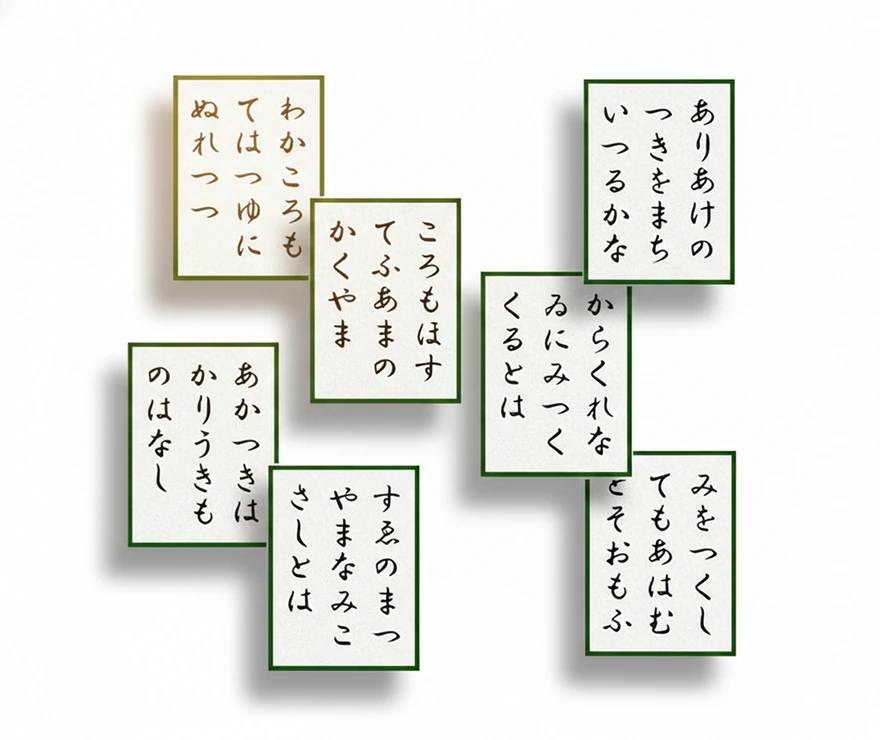 わかころも
てはつゆに
ぬれつつ
ころもほす
てふあまの
かくやま
ありあけの
つきをまち
いつるかな
からくれな
ゐにみつく
くるとは
あかつきは
かりうきも
のはなし
すゑのまつ
やまなみこ
さしとは
みをつくし
てもあはむ
とそおもふ